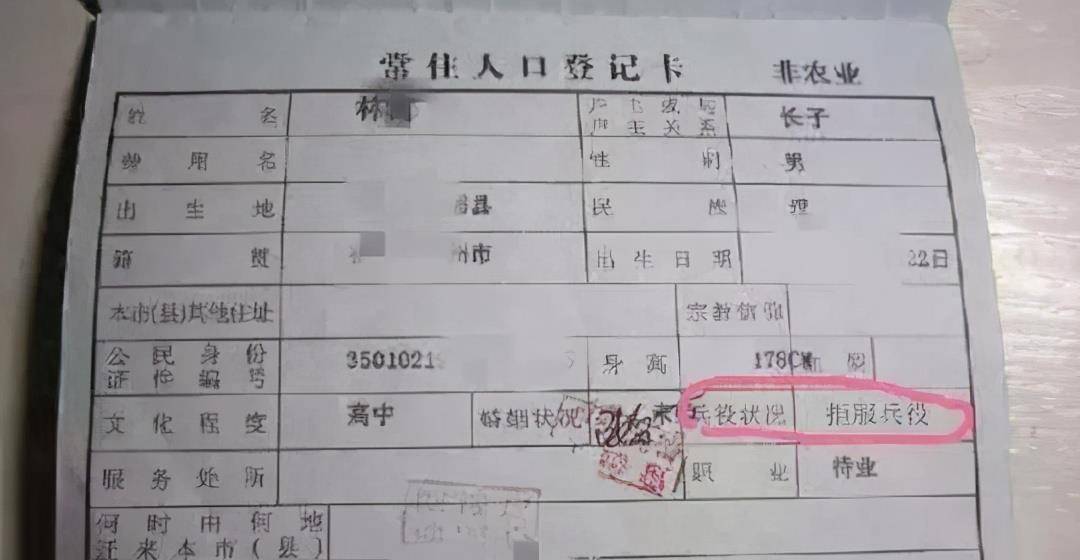 常住人口登记卡 非农业
姓名 林 户主或与户主关系 长子
曾用名 性别 男
出生地 县 民族
籍贯 市 出生日期 22日
本市(县)其他住址 宗教信仰
公民身份证件编号 3501021 身高 178CM
文化程度 高中 婚姻状况 未 兵役状况 拒服兵役
服务处所 职业 待业
何时由何地
迁来本市(县)